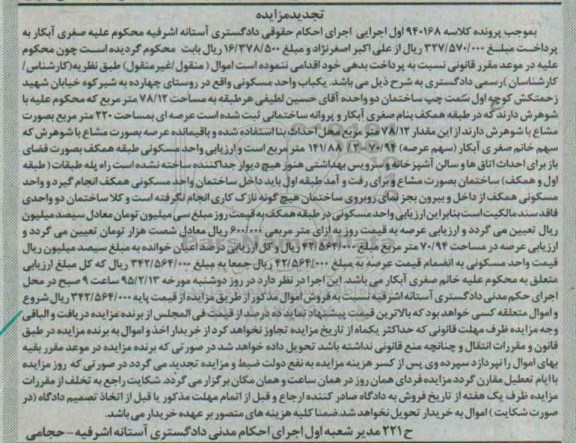 تجدیدمزایده
بموجب پرونده کلاسه ۹۴۰۱۶۸ اول اجرایی اجرای احکام حقوقی دادگستری آستانه اشرفیه محکوم علیه صغری آبکار به
پرداخت مبلغ ۳۲۷/۵۷۰/۰۰۰ ریال از علی اکبر اصغرنژاد و مبلغ ۱۶/۳۷۸/۵۰۰ ریال بابت محکوم گردیده است چون محکوم
علیه در موعد مقرر قانونی نسبت به پرداخت بدهی خود اقدامی ننموده است اموال (منقول/غیرمنقول) طبق نظریه(کارشناس/
کارشناسان)رسمی دادگستری به شرح ذیل می باشد. یکباب واحد مسکونی واقع در روستای چهارده به شیرکوه خیابان شهید
زحمتکش کوچه اول سمت چپ ساختمان دو واحده آقای حسین لطیفی هرطبقه به مساحت ۷۸/۱۲ متر مربع که محکوم علیه با
شوهرش دارند که در طبقه همکف بنام صغری آبکار و پروانه ساختمانی ثبت شده است عرصه ای بمساحت ۲۲۰ متر مربع بصورت
مشاع با شوهرش دارند از این مقدار ۷۸/۱۲ متر مربع محل احداث بنا استفاده شده و باقیمانده عرصه بصورت مشاع با شوهرش که
سهم خانم صغری آبکار (سهم عرصه) ۷۰/۹۴=۲÷۱۴۱/۸۸ متر مربع است و ارزیابی واحد مسکونی طبقه همکف بصورت فضای
باز برای احداث اتاق ها و سالن آشپزخانه و سرویس بهداشتی هنوز هیچ دیوار جداکننده ساخته نشده است راه پله طبقات (طبقه
اول و همکف) ساختمان بصورت مشاع و برای رفت و آمد طبقه اول باید داخل ساختمان واحد مسکونی همکف انجام گیرد و واحد
مسکونی همکف از داخل و بیرون بجز نمای روبروی ساختمان هیچ گونه نازک کاری انجام نگرفته است و کلا ساختمان دو واحدی
فاقد سند مالکیت است بنابراین ارزیابی واحد مسکونی در طبقه همکف به قیمت روز مبلغ سی میلیون تومان معادل سیصد میلیون
ریال تعیین می گردد و ارزیابی عرصه به قیمت روز به ازای متر مربعی ۶۰۰/۰۰۰ ریال معادل شصت هزار تومان تعیین می گردد و
ارزیابی عرصه در مساحت ۷۰/۹۴ متر مربع مبلغ ۴۲/۵۶۴/۰۰۰ ریال و کل ارزیابی عرصه اعیان خوانده به مبلغ سیصد میلیون ریال
قیمت واحد مسکونی به انضمام قیمت عرصه به مبلغ ۴۲/۵۶۴/۰۰۰ ریال جمعا به مبلغ ۳۴۲/۵۶۴/۰۰۰ ریال که کل مبلغ ارزیابی
متعلق به محکوم علیه خانم صغری آبکار می باشد. این اجرا در نظر دارد در روز دوشنبه مورخه ۹۵/۲/۱۳ ساعت ۹ صبح در محل
اجرای حکم مدنی دادگستری آستانه اشرفیه نسبت به فروش اموال مذکور از طریق مزایده از قیمت پایه ۳۴۲/۵۶۴/۰۰۰ ریال شروع
و اموال متعلقه کسی خواهد بود که بالاترین قیمت پیشنهاد نماید ده درصد از قیمت فی المجلس از برنده مزایده دریافت و الباقی
وجه مزایده ظرف مهلت قانونی که حداکثر یکماه از تاریخ مزایده تجاوز نخواهد کرد از خریدار اخذ و اموال به برنده مزایده در طبق
قانون و مقررات انتقال و چنانچه منع قانونی نداشته باشد تحویل داده خواهد شد در صورتی که برنده مزایده در موعد مقرر بقیه
بهای اموال را نپردازد سپرده وی پس از کسر هزینه مزایده به نفع دولت ضبط و مزایده تجدید می گردد در صورتی که روز مزایده
با ایام تعطیل مقارن گردد مزایده فردای همان روز در همان ساعت و همان مکان برگزار می گردد. شکایت راجع به تخلف از مقررات
مزایده ظرف یک هفته از تاریخ فروش به دادگاه صادر کننده ارجاع و قبل از اتمام مهلت مذکور یا قبل از اتخاذ تصمیم دادگاه (در
صورت شکایت) اموال به خریدار تحویل نخواهد شد.ضمنا کلیه هزینه های متصور بر عهده خریدار می باشد.
ح۲۲۱ مدیر شعبه اول اجرای احکام مدنی دادگستری آستانه اشرفیه – حجامی